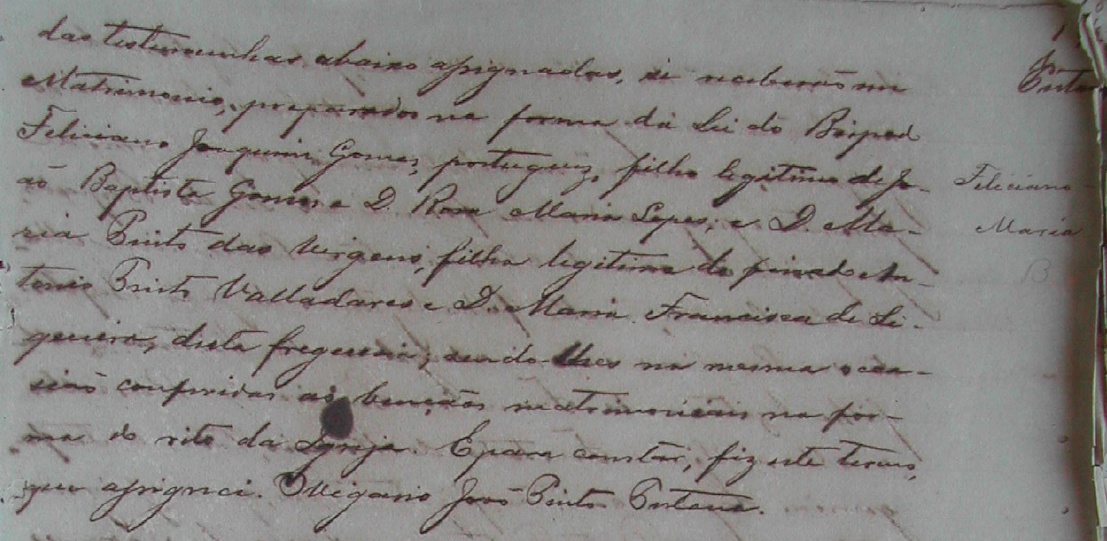 das testemunhas abaixo assignadas, se receberão em
Matrimonio, preparados na forma da Lei do Bispado
Feliciano Joaquim Gomes, portuguez, filho legitimo de Jo-
ão Baptista Gomes e D. Rosa Maria Lopes; e D. Ma-
ria Pinto das Virgens, filha legitima do finado An-
tonio Pinto Valladares e D. Maria Francisca de Si-
queira, desta freguesia; sendo-lhes na mesma occa-
sião conferidas as bençãos matrimoniais na for-
ma do rito da Igreja. E para constar, fiz este termo,
que assignei. O Vigario João Pinto
Feliciano
Maria
B